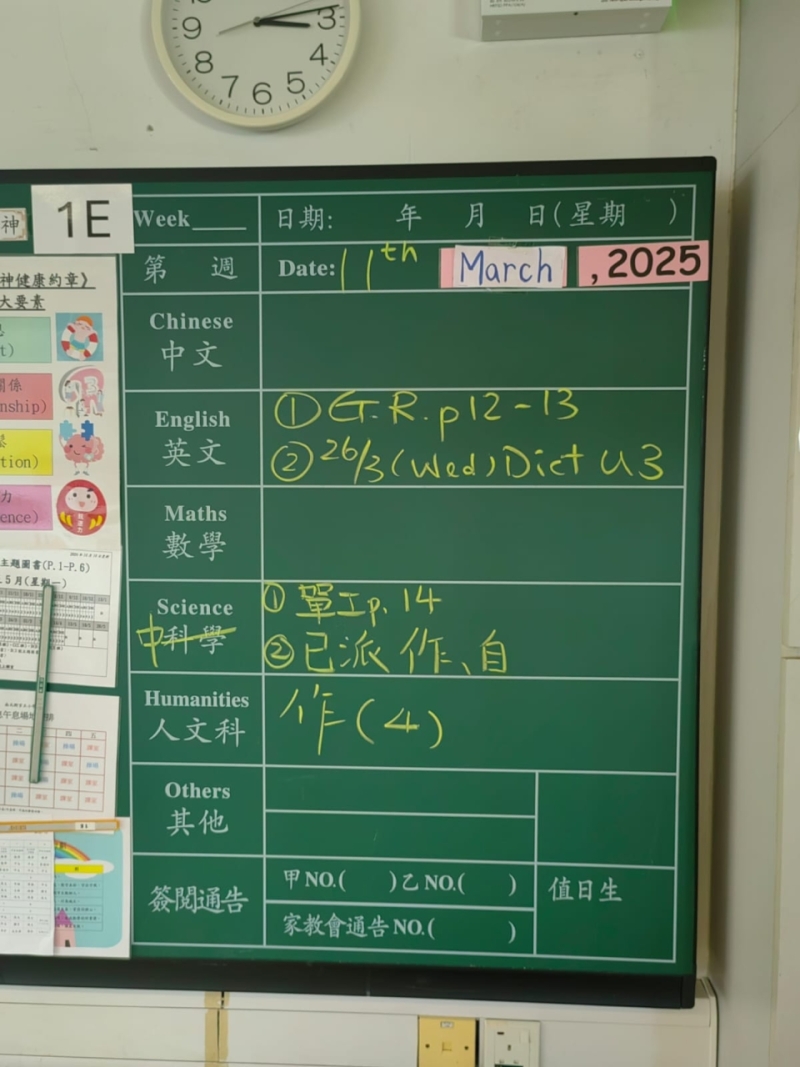 9
3
8
4
7
6
5
神
1E
Week
日期: 年 月 日(星期 )
第 週
Date: 11th March , 2025
神健康約章》
大要素
Chinese
中文
English
英文
① G.R. p12-13
② 26/3 (Wed) Dict U3
nship)
tion)
ence)
Maths
數學
主題圖書(P.1-P.6)
5月(星期一)
Science
中科學
① 單工p.14
② 已派作、自
Humanities
人文科
作(4)
Others
其他
簽閱通告
甲NO.( )乙NO.( )
家教會通告NO.( )
值日生